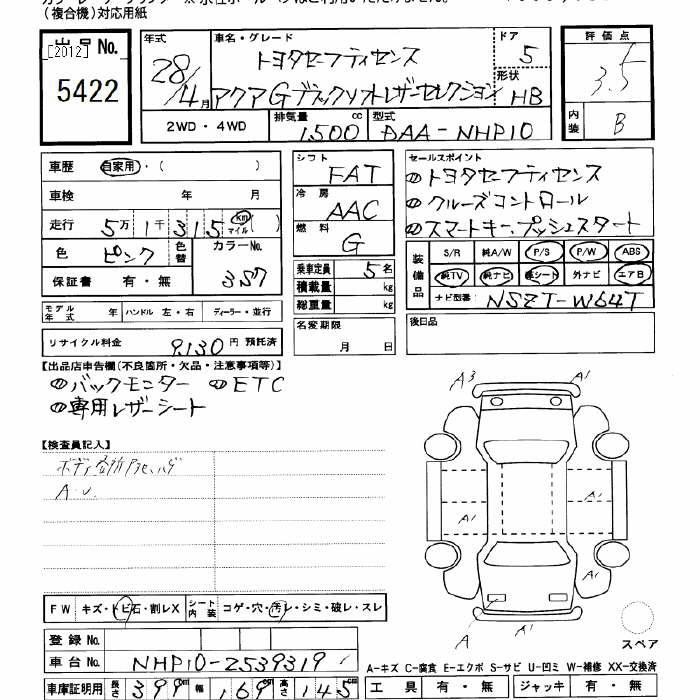 (複合機)対応用紙
出品No.
[2012]
5422
年式
28/4月
車名・グレード
トヨタセーフティセンス
アクアGブラックソフトレザーセレクション
ドア
5
形状
HB
評価点
3.5
内装
B
2WD・4WD
排気量
1500
cc
型式
DAA-NHP10
車歴
自家用・( )
車検 年 月
走行 5万1千315
km
マイル
( )
色
ピンク
色替
カラーNo.
3S7
保証書 有・無
モデル年式 年
ハンドル 左・右
ディーラー・並行
リサイクル料金 9,130円 預託済
シフト
FAT
冷房
AAC
燃料
G
乗車定員 5名
積載量 kg
総重量 kg
名変期限
月 日
セールスポイント
トヨタセーフティセンス
クルーズコントロール
スマートキー、プッシュスタート
装備品
S/R 純A/W P/S P/W ABS
純TV 純ナビ 革シート 外ナビ エアB
ナビ型番 NSZT-W64T
後日品
【出品店申告欄(不良箇所・欠品・注意事項等)】
バックモニター ETC
専用レザーシート
【検査員記入】
A.U.
A3
A1
A1
A1
A1
A
スペア
FW キズ・トビ石・割レX
シート内装 コゲ・穴・汚レ・シミ・破レ・スレ
登録No.
車台No. NHP10-2539319
車庫証明用 長さ 399cm 幅 169cm 高さ 145cm
A-キズ C-腐食 E-エクボ S-サビ U-凹ミ W-補修 XX-交換済
工具 有・無 ジャッキ 有・無